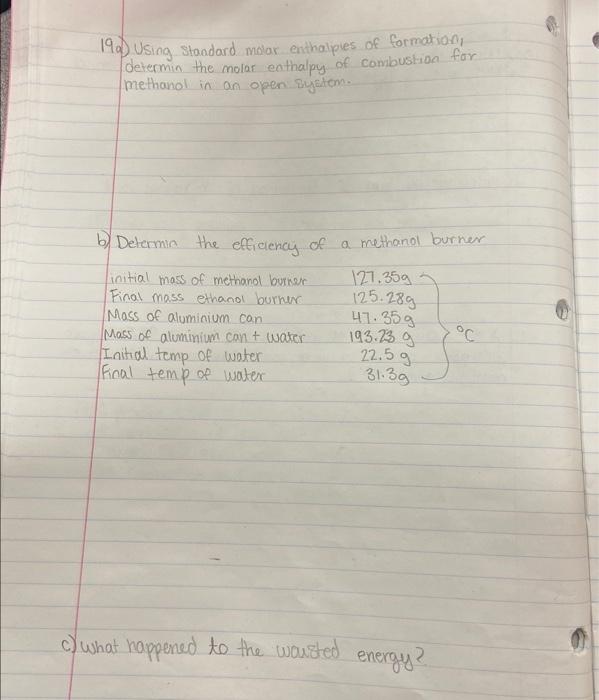 19a) Using standard molar enthalpies of formation,
determin the molar enthalpy of combustion for
methanol in an open system.
b) Determin the efficiency of a methanol burner
initial mass of methanol burner 127.35g
Final mass ethanol burner 125.28g
Mass of aluminium can 47.35g
Mass of aluminium can + water 193.23 g
Initial temp of water 22.5 g
Final temp of water 31.3g
°C
c) what happened to the wausted energy?